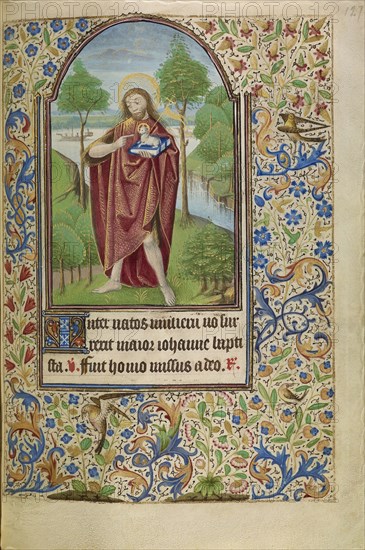 127
Inter natos mulieru no sur
rexit maior iohanne bapti
sta. V. Fuit homo missus a deo. R.